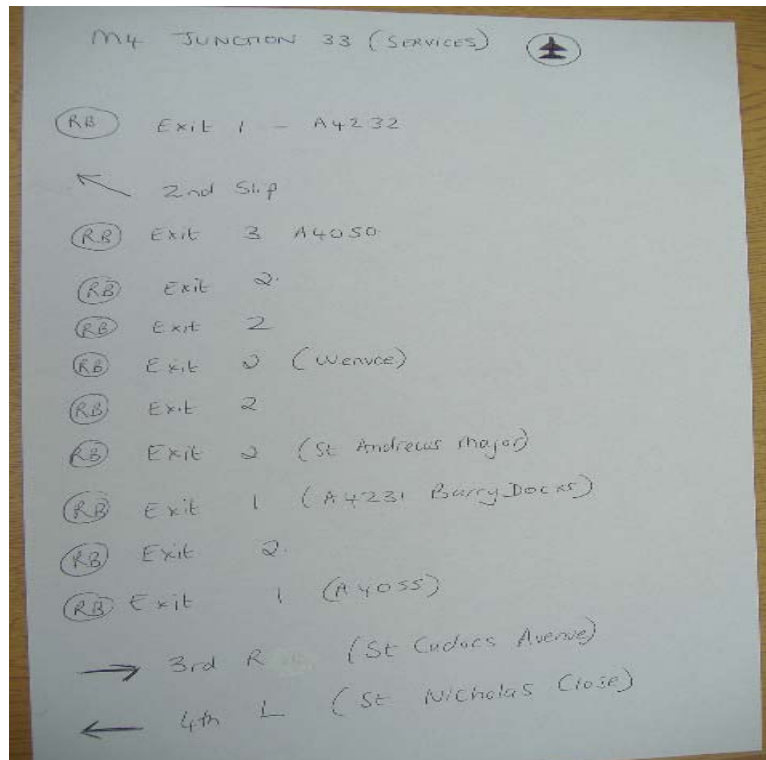 M4 JUNCTION 33 (SERVICES)
RB Exit 1 - A4232
2nd Slip
RB Exit 3 A4050
RB Exit 2.
RB Exit 2
RB Exit 2 (Wenvce)
RB Exit 2
RB Exit 2 (St Andrews Major)
RB Exit 1 (A4231 Barry Docks)
RB Exit 2.
RB Exit 1 (A4055)
3rd R (St Cadocs Avenue)
4th L (St Nicholas Close)